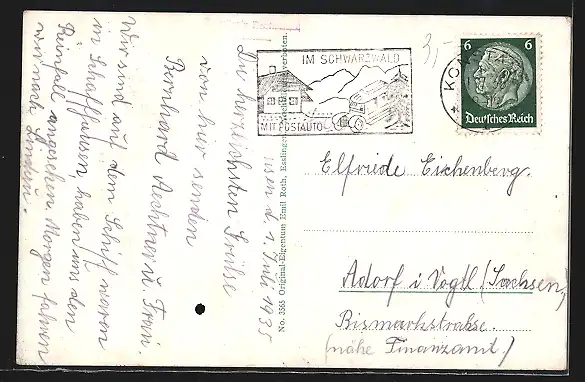 usw. d. 1. Juli 1935
Die herzlichsten Grüße
von hier senden
Bernhard Aechtner u Frau
Wir sind auf dem Schiff waren
in Schaffhausen haben uns den
Reinfall angesehen Morgen fahren
wir nach Lindau.
No. 3565 Original-Eigentum Emil Roth, Esslingen verboten.
IM SCHWARZWALD
MIT POSTAUTO
3,-
KON
6 6
Deutsches Reich
Elfriede Eichenberg.
Adorf i. Vogtl. (Sachsen)
Bismarkstrakse.
(nähe Finanzamt.)